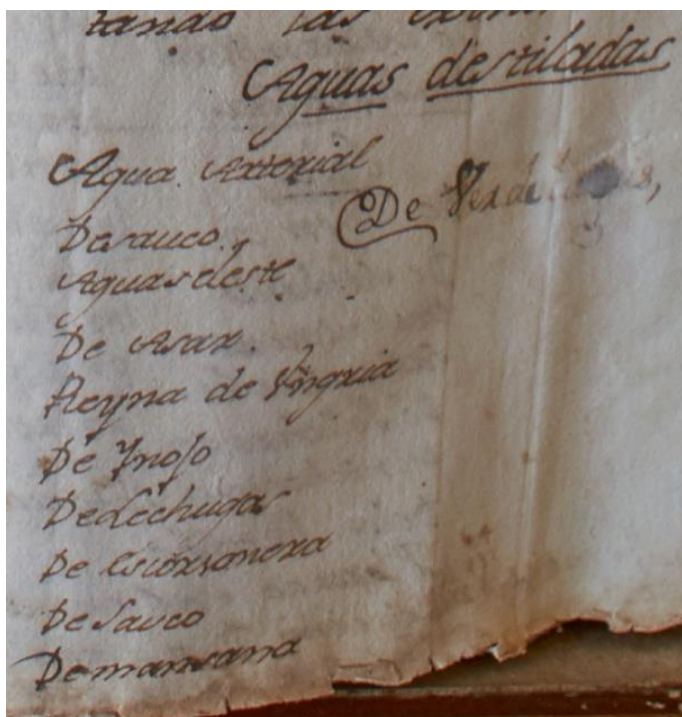 tando las
Aguas destiladas
Agua Arterial
De Verdolagas,
De sauco.
Aguas deste
De Asar.
Reyna de Vngria
De Ynojo
De Lechugas
De Escorsonera
De Sauco
De mansana